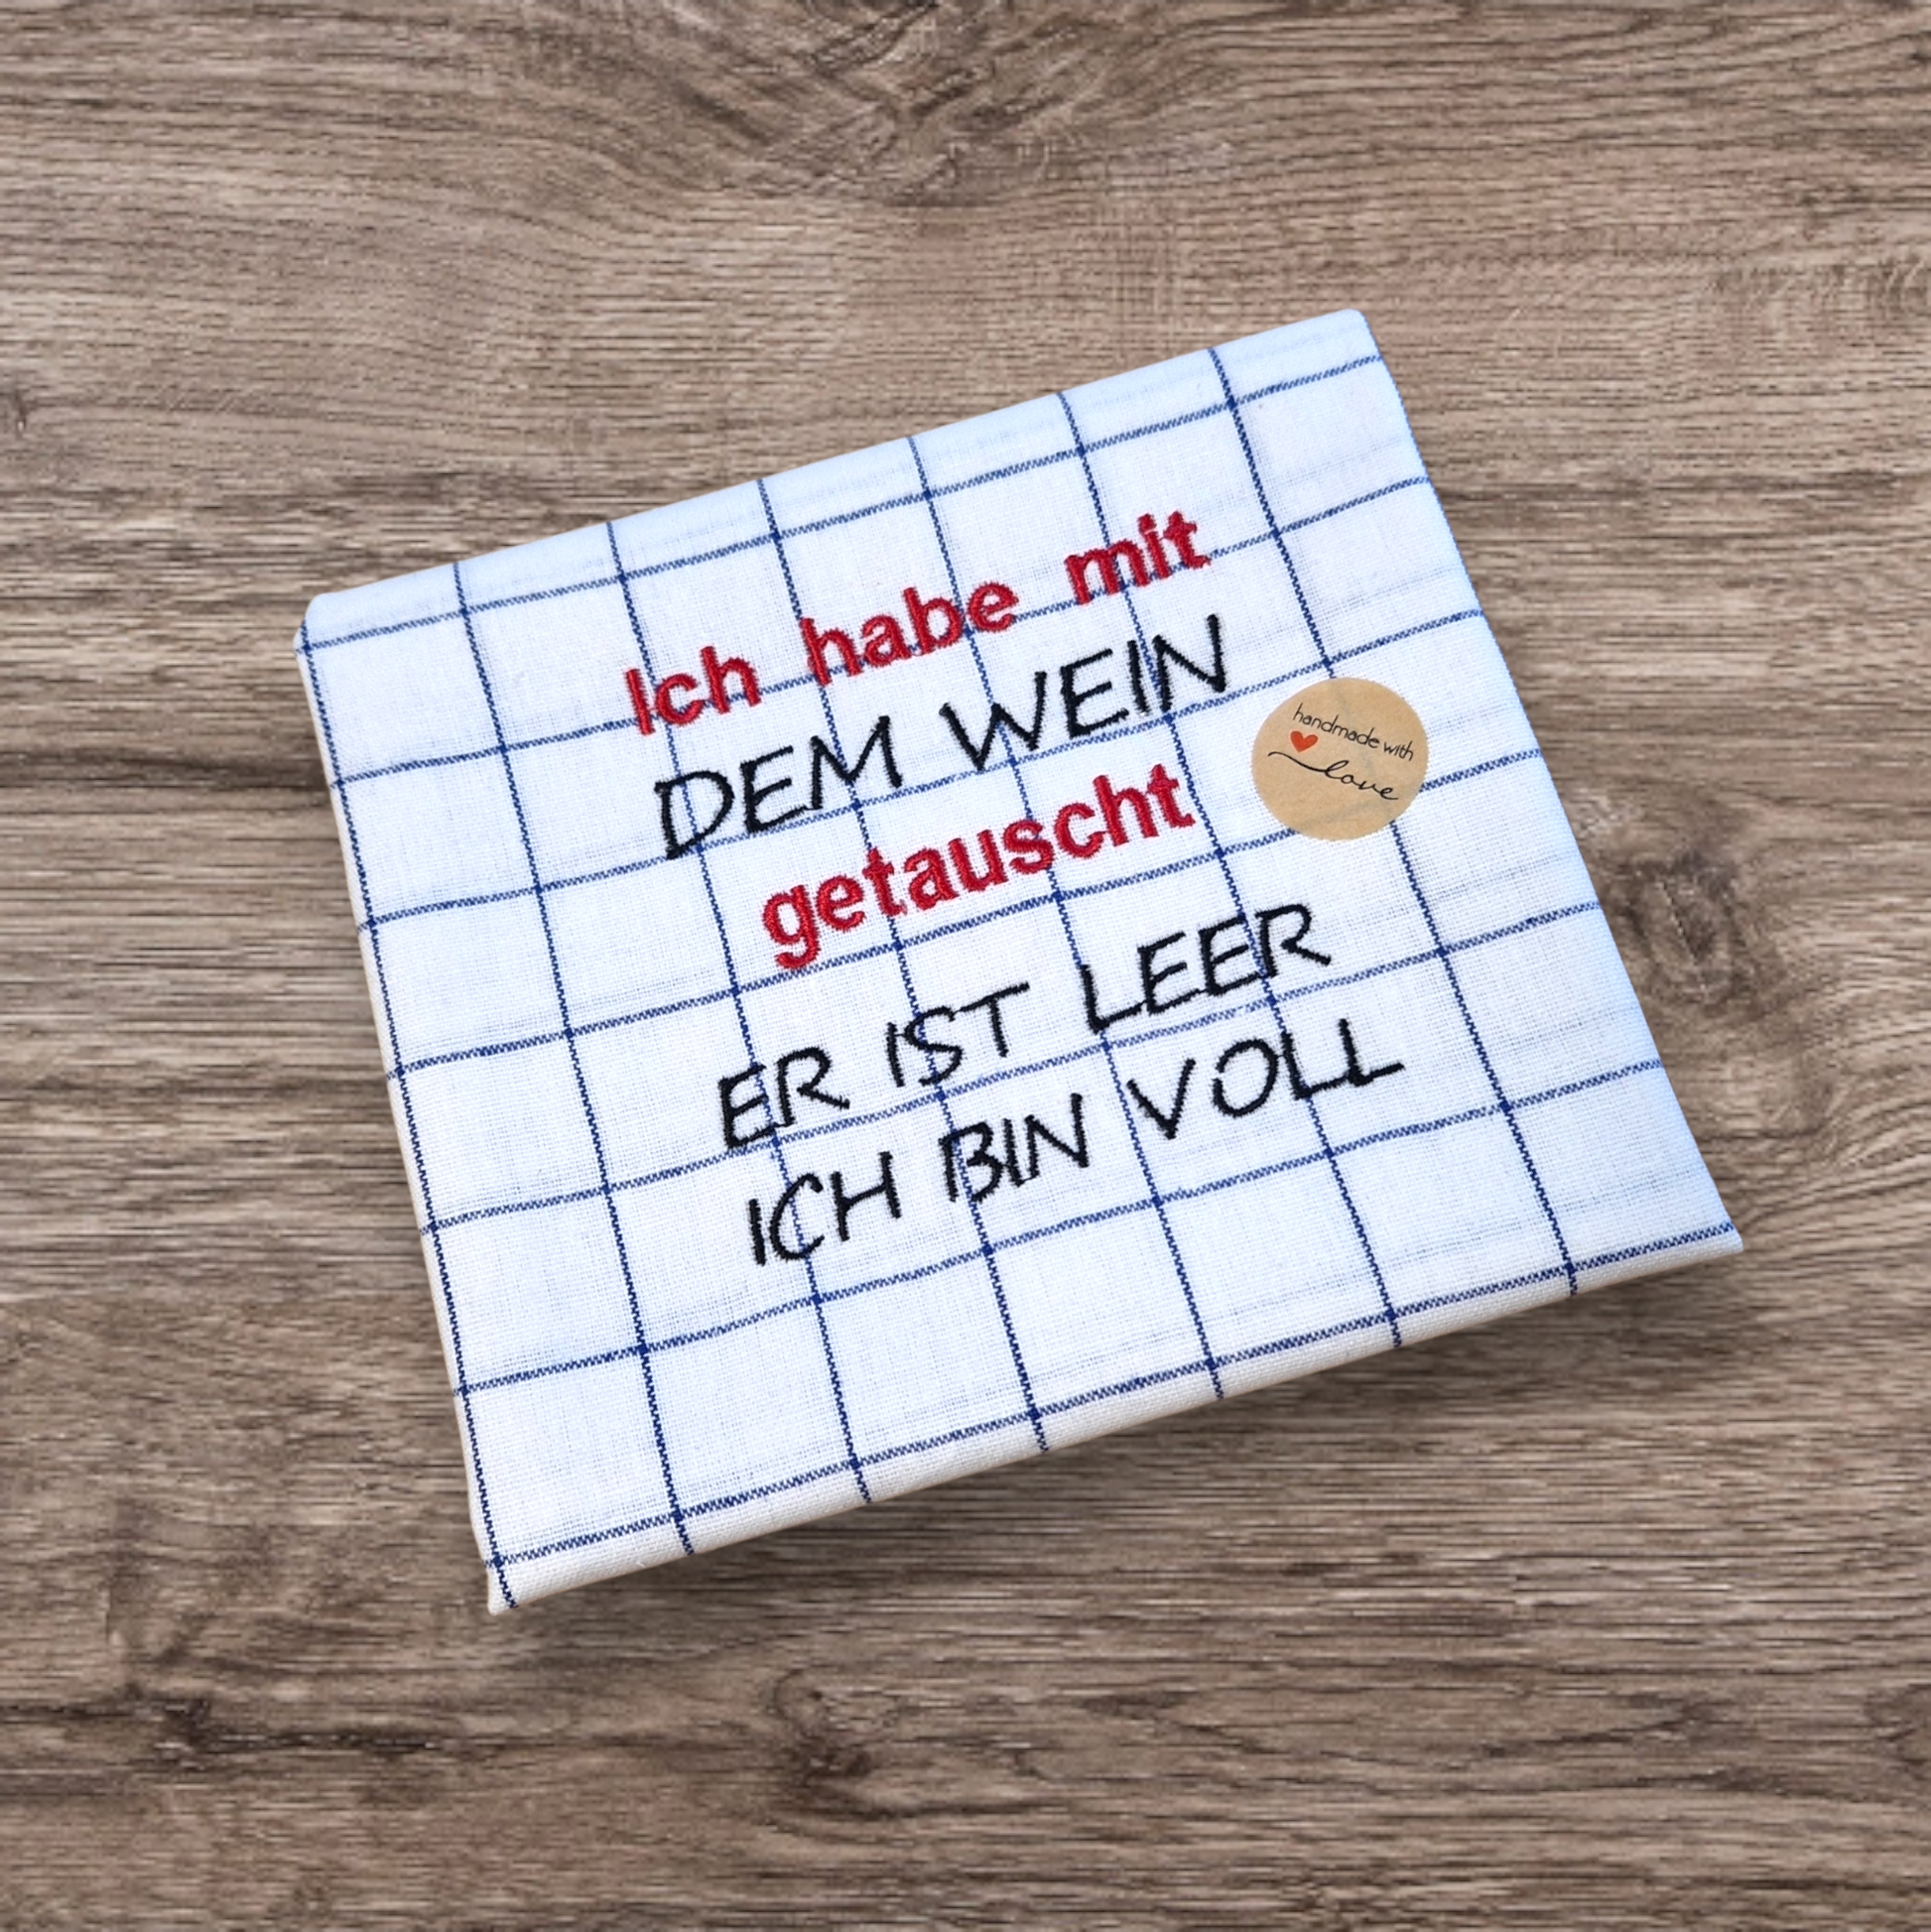 Ich habe mit
DEM WEIN
getauscht
ER IST LEER
ICH BIN VOLL
handmade with
love